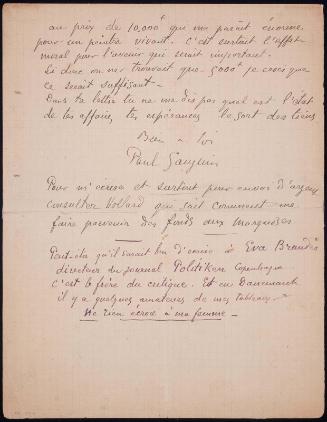 au prix de 10.000f que me paraît énorme
pour un peintre vivant. C'est surtout l'effet
moral pour l'avenir qui serait important.
Si donc on ne trouvait que 5000f je crois que
ce serait suffisant —
Dans ta lettre tu ne me dis pas quel est l'état
de tes affaires, tes espérances le sort des tiens
Bien à toi
Paul Gauguin
Pour m'écrire et surtout pour envoi d'argent
consulter Vollard qui sait comment me
faire parvenir des fonds aux Marquises
Peut-être qu'il serait bon d'écrire à Eva Brandès
directeur du journal Politiken Copenhague
c'est le frère du critique. Et en Danemarck
il y a quelques amateurs de mes tableaux —
Ne rien écrire à ma femme —